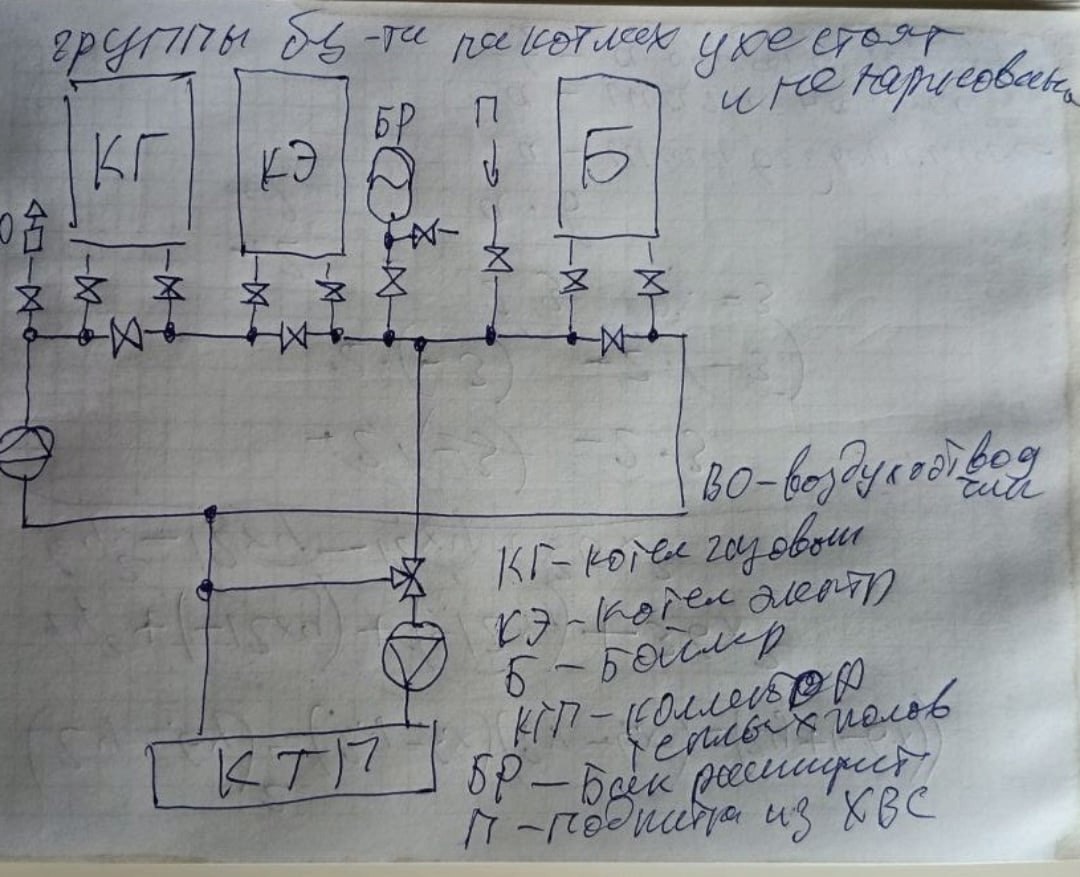 группы без-ти на котлах уже стоят
и не нарисованы
КГ
КЭ
БР
П
Б
О
ВО - воздухоотводчик
КГ - котел газовый
КЭ - котел электр
Б - Бойлер
КТП - коллектор
теплых полов
БР - Бак расширит
П - подпитка из ХВС
КТП